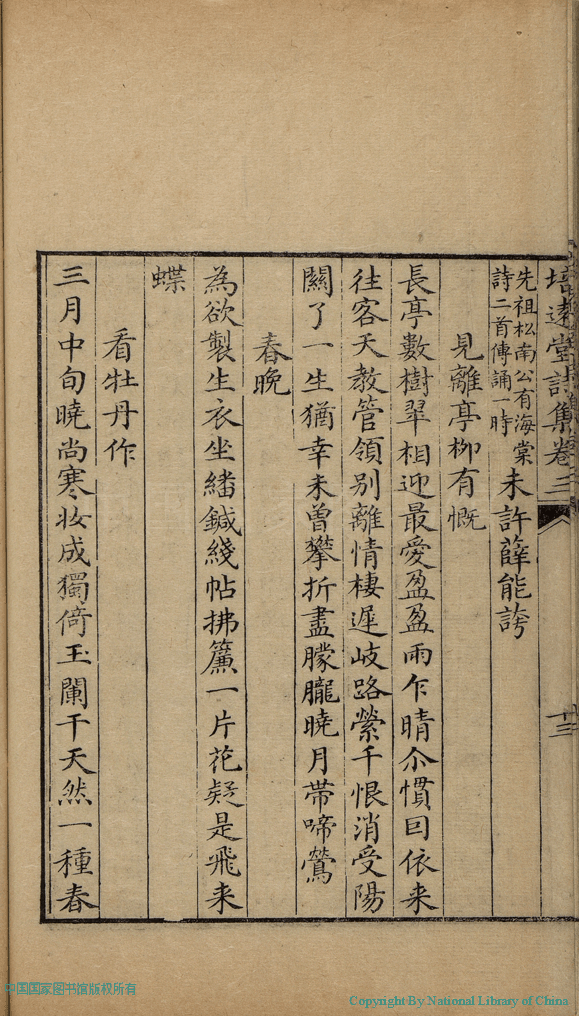 培遠堂詩集卷三
十三
先祖松南公有海棠
詩二首傳誦一時
未許薛能誇
見離亭柳有慨
長亭數樹翠相迎最愛盈盈雨乍晴尒慣回依来
往客天教管領别離情棲遲歧路縈千恨消受陽
關了一生猶幸未曾攀折盡朦朧曉月帶啼鶯
春晚
為欲製生衣坐繙鍼綫帖拂簾一片花疑是飛来
蝶
看牡丹作
三月中旬曉尚寒妝成獨倚玉闌干天然一種春
中国国家图书馆版权所有
Copyright By National Library of China